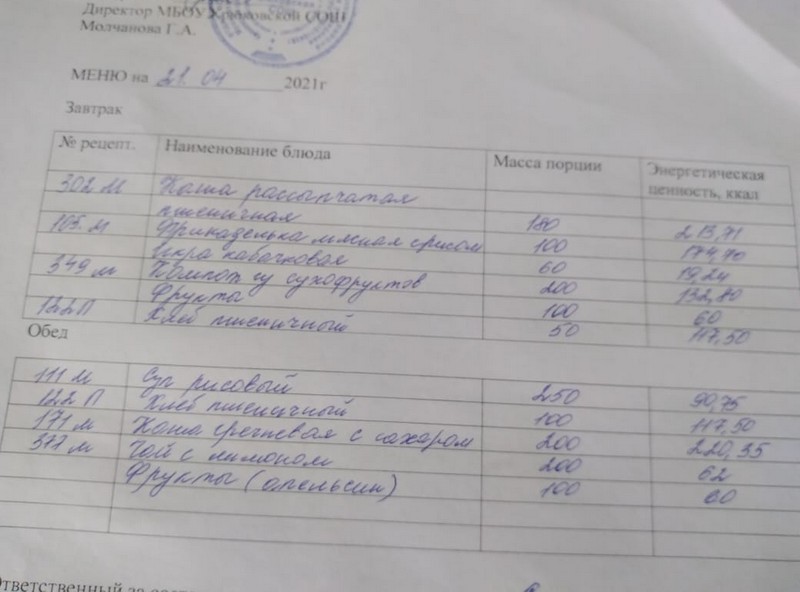 Директор МБОУ Крюковской СОШ
Молчанова Г.А.
МЕНЮ на 21. 04 2021г
Завтрак
№ рецепт. Наименование блюда Масса порции Энергетическая ценность, ккал
302 м Каша рассыпчатая
пшеничная 180 213,71
105. м Фрикаделька мясная с рисом 100 174,70
Икра кабачковая 60 19,24
349 м Компот из сухофруктов 200 132,80
Фрукты 100 60
122П Хлеб пшеничный 50 117,50
Обед
111 м Суп рисовый 250 90,75
122 П Хлеб пшеничный 100 117,50
171 м Каша гречневая с сахаром 200 220,35
377 м Чай с лимоном 200 62
Фрукты (апельсин) 100 60
Ответственный за